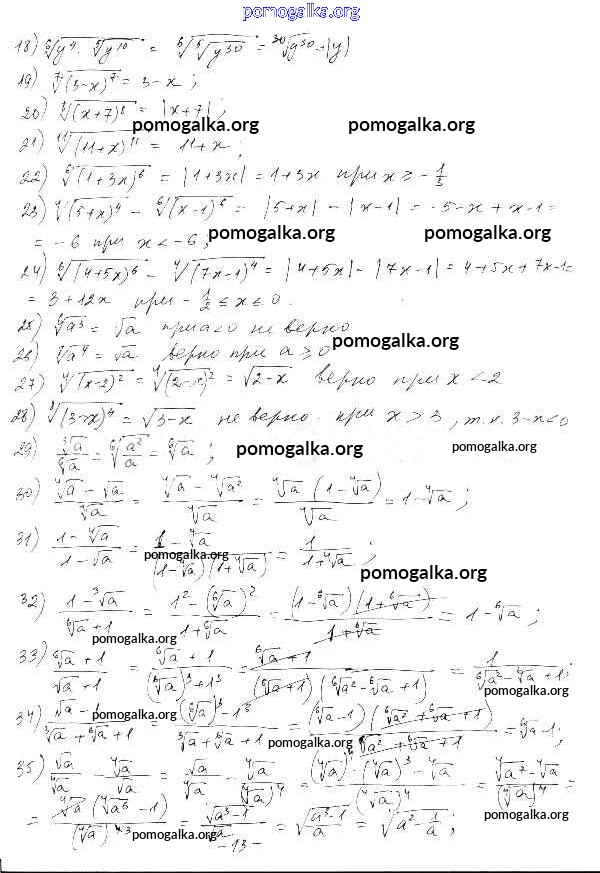 pomogalka.org
18) ⁶√(y⁴ · ⁵√y¹⁰) = ⁶√(⁵√y³⁰) = ³⁰√y³⁰ = |y|
19) ⁷√(3-x)⁷ = 3-x;
20) ⁸√(x+7)⁸ = |x+7|;
pomogalka.org pomogalka.org
21) ¹¹√(11+x)¹¹ = 11+x;
22) ⁶√(1+3x)⁶ = |1+3x| = 1+3x при x ≥ -1/3
23) ⁴√(5+x)⁴ - ⁶√(x-1)⁶ = |5+x| - |x-1| = -5-x+x-1 =
= -6 при x < -6;
pomogalka.org pomogalka.org
24) ⁶√(4+5x)⁶ - ⁴√(7x-1)⁴ = |4+5x| - |7x-1| = 4+5x+7x-1=
= 3+12x при -1/2 ≤ x ≤ 0.
25) ⁶√a³ = √a при a<0 не верно
pomogalka.org
26) a⁴ = √a верно при a ≥ 0
27) ⁴√(x-2)² = ⁴√(2-x)² = √(2-x) верно при x < 2
28) ⁸√(3-x)⁴ = √(3-x) не верно при x > 3, т.к. 3-x<0
29) ³√a / ⁶√a = ⁶√(a²/a) = ⁶√a;
pomogalka.org pomogalka.org
30) (⁴√a - √a)/⁴√a = (⁴√a - ⁴√a²)/⁴√a = ⁴√a (1-⁴√a)/⁴√a = 1-⁴√a;
31) (1-⁴√a)/(1-√a) = (1-⁴√a)/((1-⁴√a)(1+⁴√a)) = 1/(1+⁴√a);
pomogalka.org
pomogalka.org
32) (1-³√a)/(⁶√a+1) = (1²-(⁶√a)²)/(1+⁶√a) = (1-⁶√a)(1+⁶√a)/(1+⁶√a) = 1-⁶√a;
pomogalka.org
33) (⁶√a+1)/(√a+1) = (⁶√a+1)/((⁶√a)³+1³) = (⁶√a+1)/((⁶√a+1)(⁶√a²-⁶√a+1)) = 1/(⁶√a²-⁶√a+1);
pomogalka.org
34) (√a-1)/(³√a+⁶√a+1) = ((⁶√a)³-1³)/(³√a+⁶√a+1) = (⁶√a-1)(⁶√a²+⁶√a+1)/(⁶√a²+⁶√a+1) = ⁶√a-1;
pomogalka.org
pomogalka.org
35) √a/⁴√a - ⁴√a/√a = √a/⁴√a - ⁴√a/(⁴√a)⁴ = ((⁴√a)⁴·(⁴√a)³-⁴√a)/(⁴√a)⁴ = (⁴√a⁷-⁴√a)/(⁴√a)⁴ =
= ⁴√a(⁴√a⁶-1)/(⁴√a)⁴ ³ = = √((a³-1)/a) = √(a²-1/a);
pomogalka.org
pomogalka.org
-13-